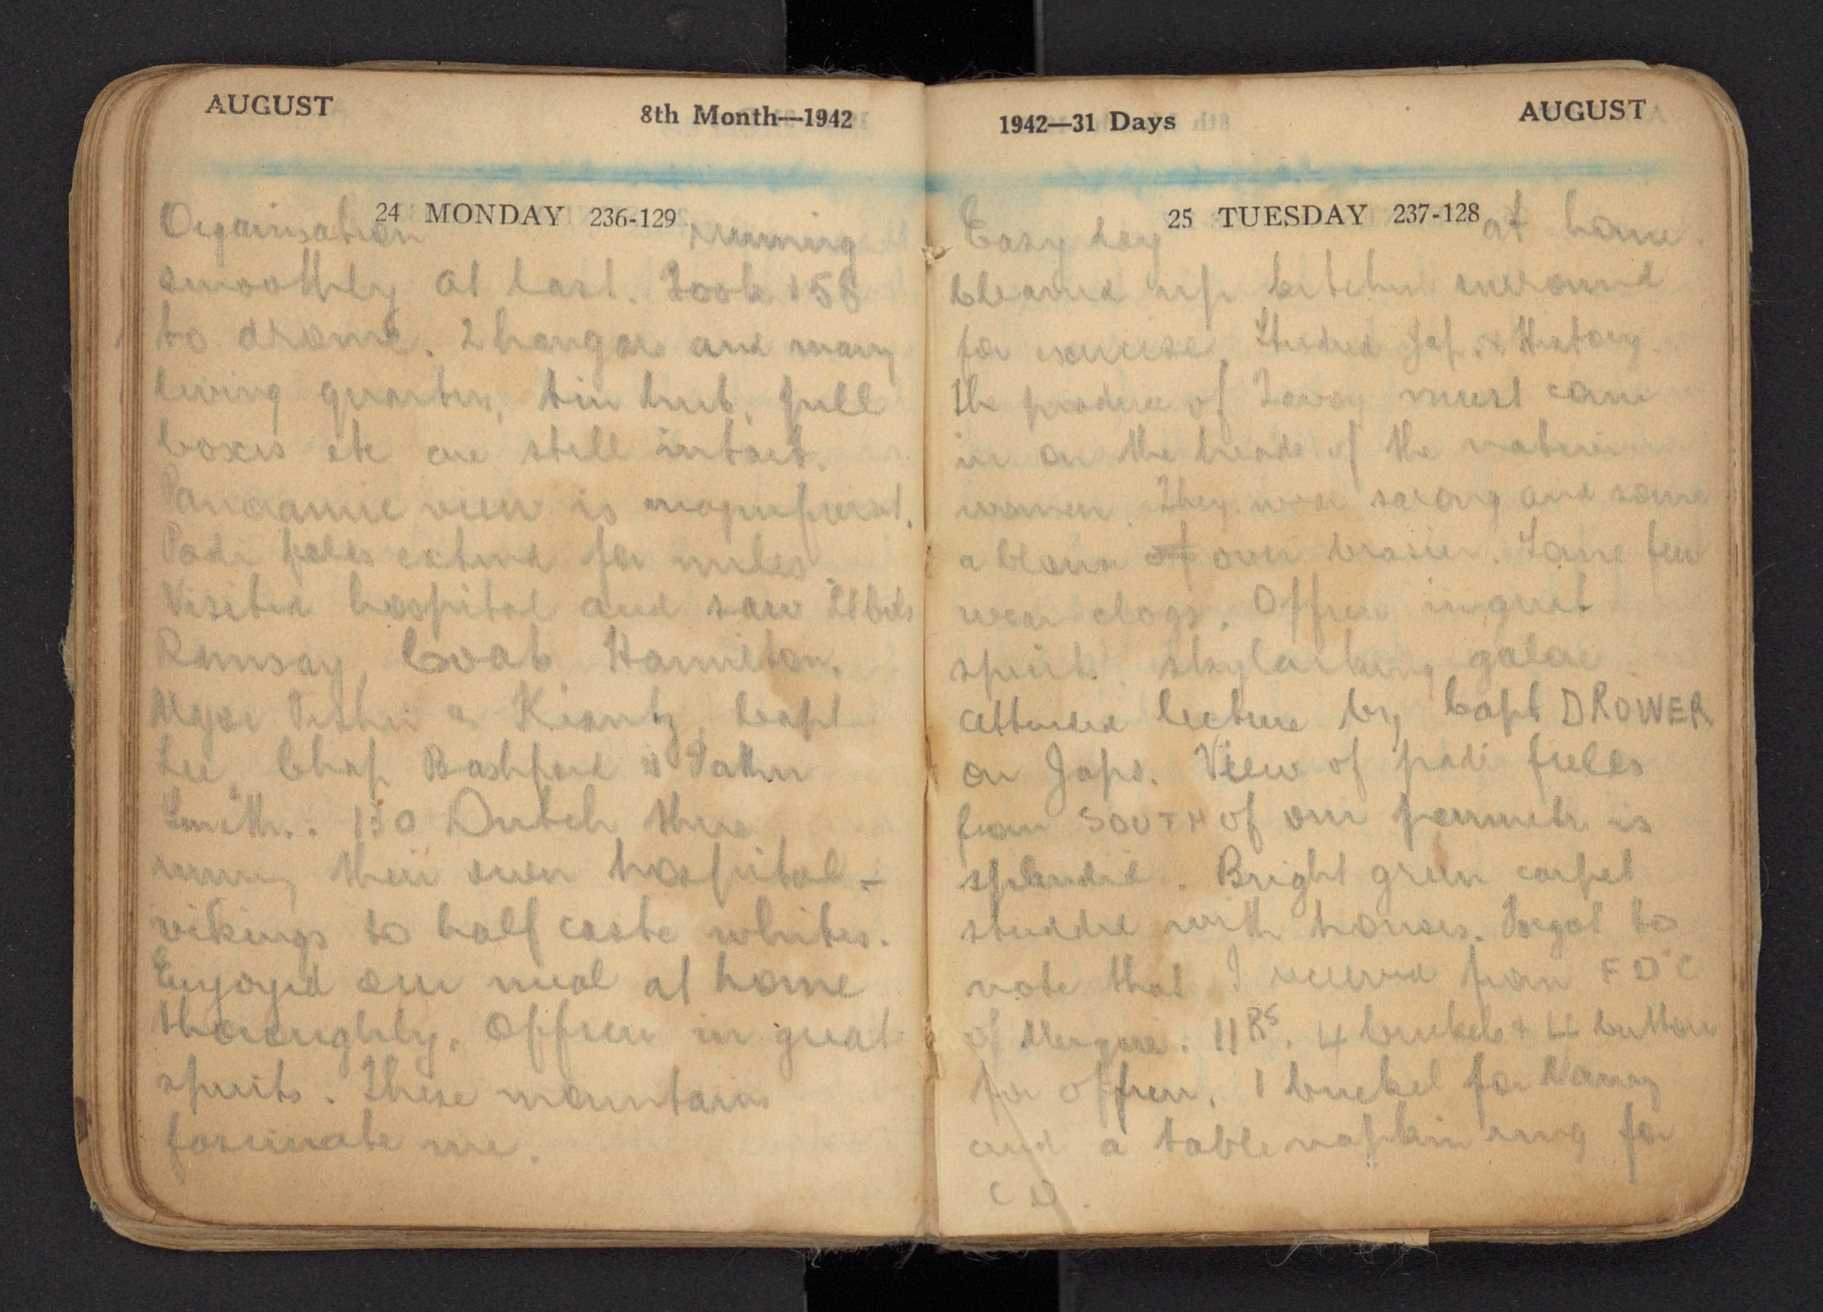 AUGUST 8th Month—1942
24 MONDAY 236-129
Organisation running
smoothly at last. Took 158
to drome. 2 hangars and many
living quarters, tin huts, pill
boxes etc are still intact.
Panoramic view is magnificent.
Padi fields extend for miles
Visited hospital and saw Lt Cols
Ramsay, Coats, Hamilton,
Major Fisher & Krantz, Capt
Lee, Chap Bashford & Father
Smith. 130 Dutch there
running their own hospital –
vikings to half caste whites.
Enjoyed our meal at home
thoroughly. Officers in great
spirits. These mountains
fascinate me.
1942—31 Days AUGUST
25 TUESDAY 237-128
Easy day at home.
Cleaned up kitchen surround
for exercise. Studied Jap. & History.
The produce of Tavoy must come
in on the heads of the native
women. They wear sarong and some
a blouse of over brasier. Some few
wear clogs. Officers in great
spirits. skylarking galore
Attended lecture by Capt DROWER
on Japs. View of padi fields
from SOUTH of our perimeter is
splendid. Bright green carpet
studded with houses. Forgot to
note that I received from FDC
of Mergui. 11 RS. 4 buckets & 4 buttons
for officers. 1 bucket for
and a table napkin ring for
CD.